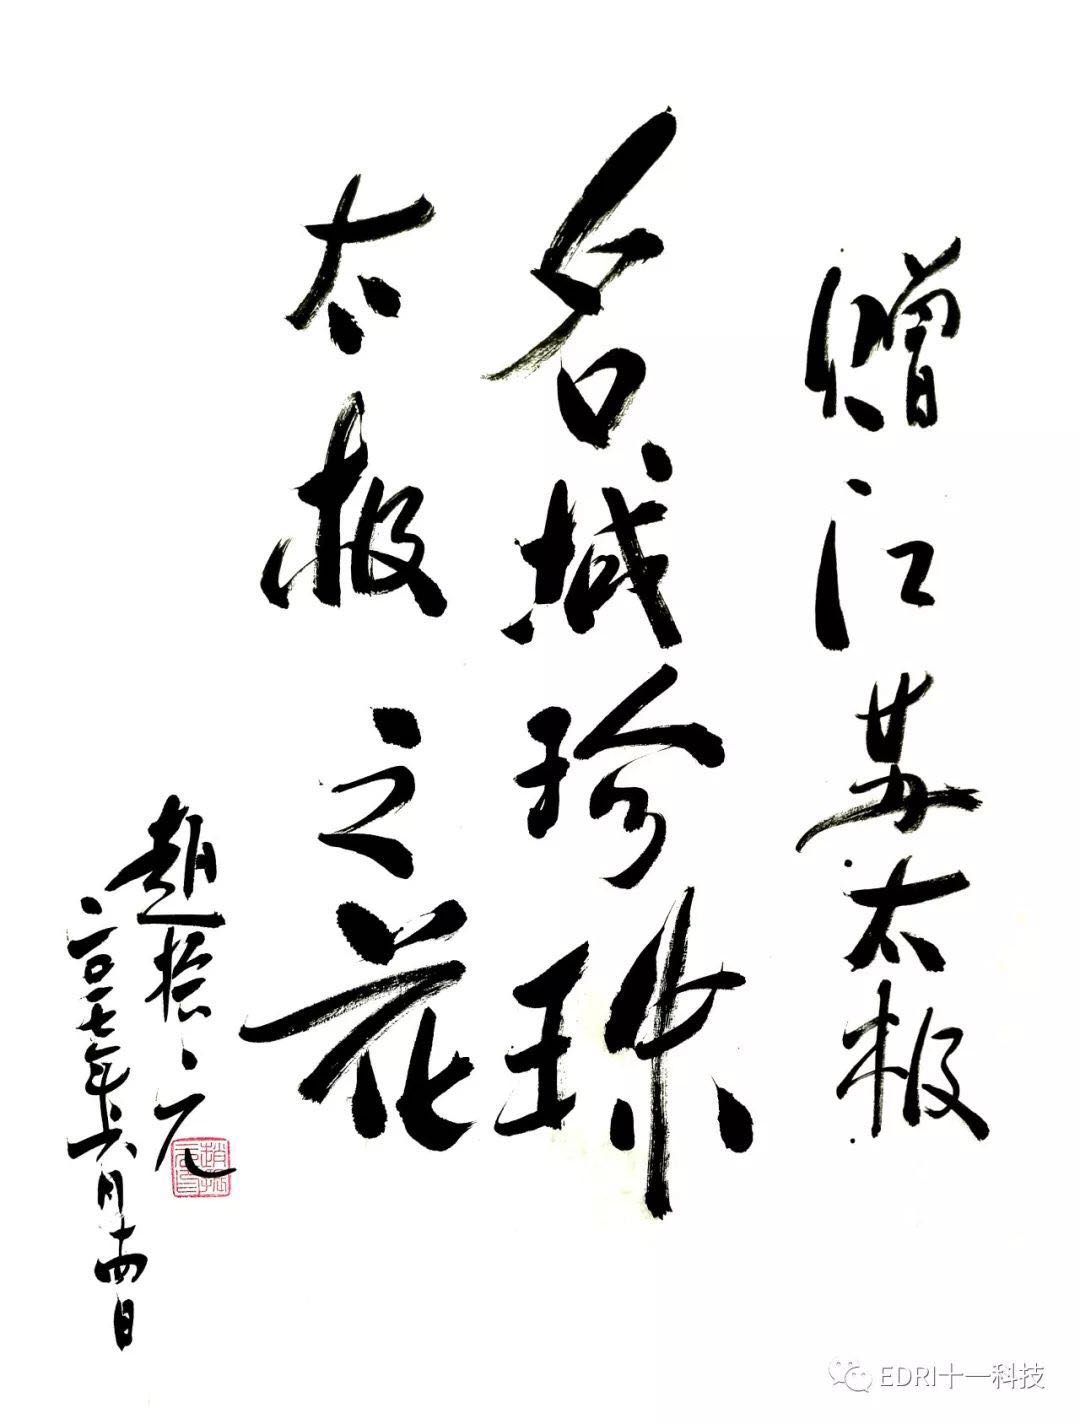 赠江苏太极
名城珍珠
太极之花
赵振元
二〇一七年六月十四日
EDRI十一科技